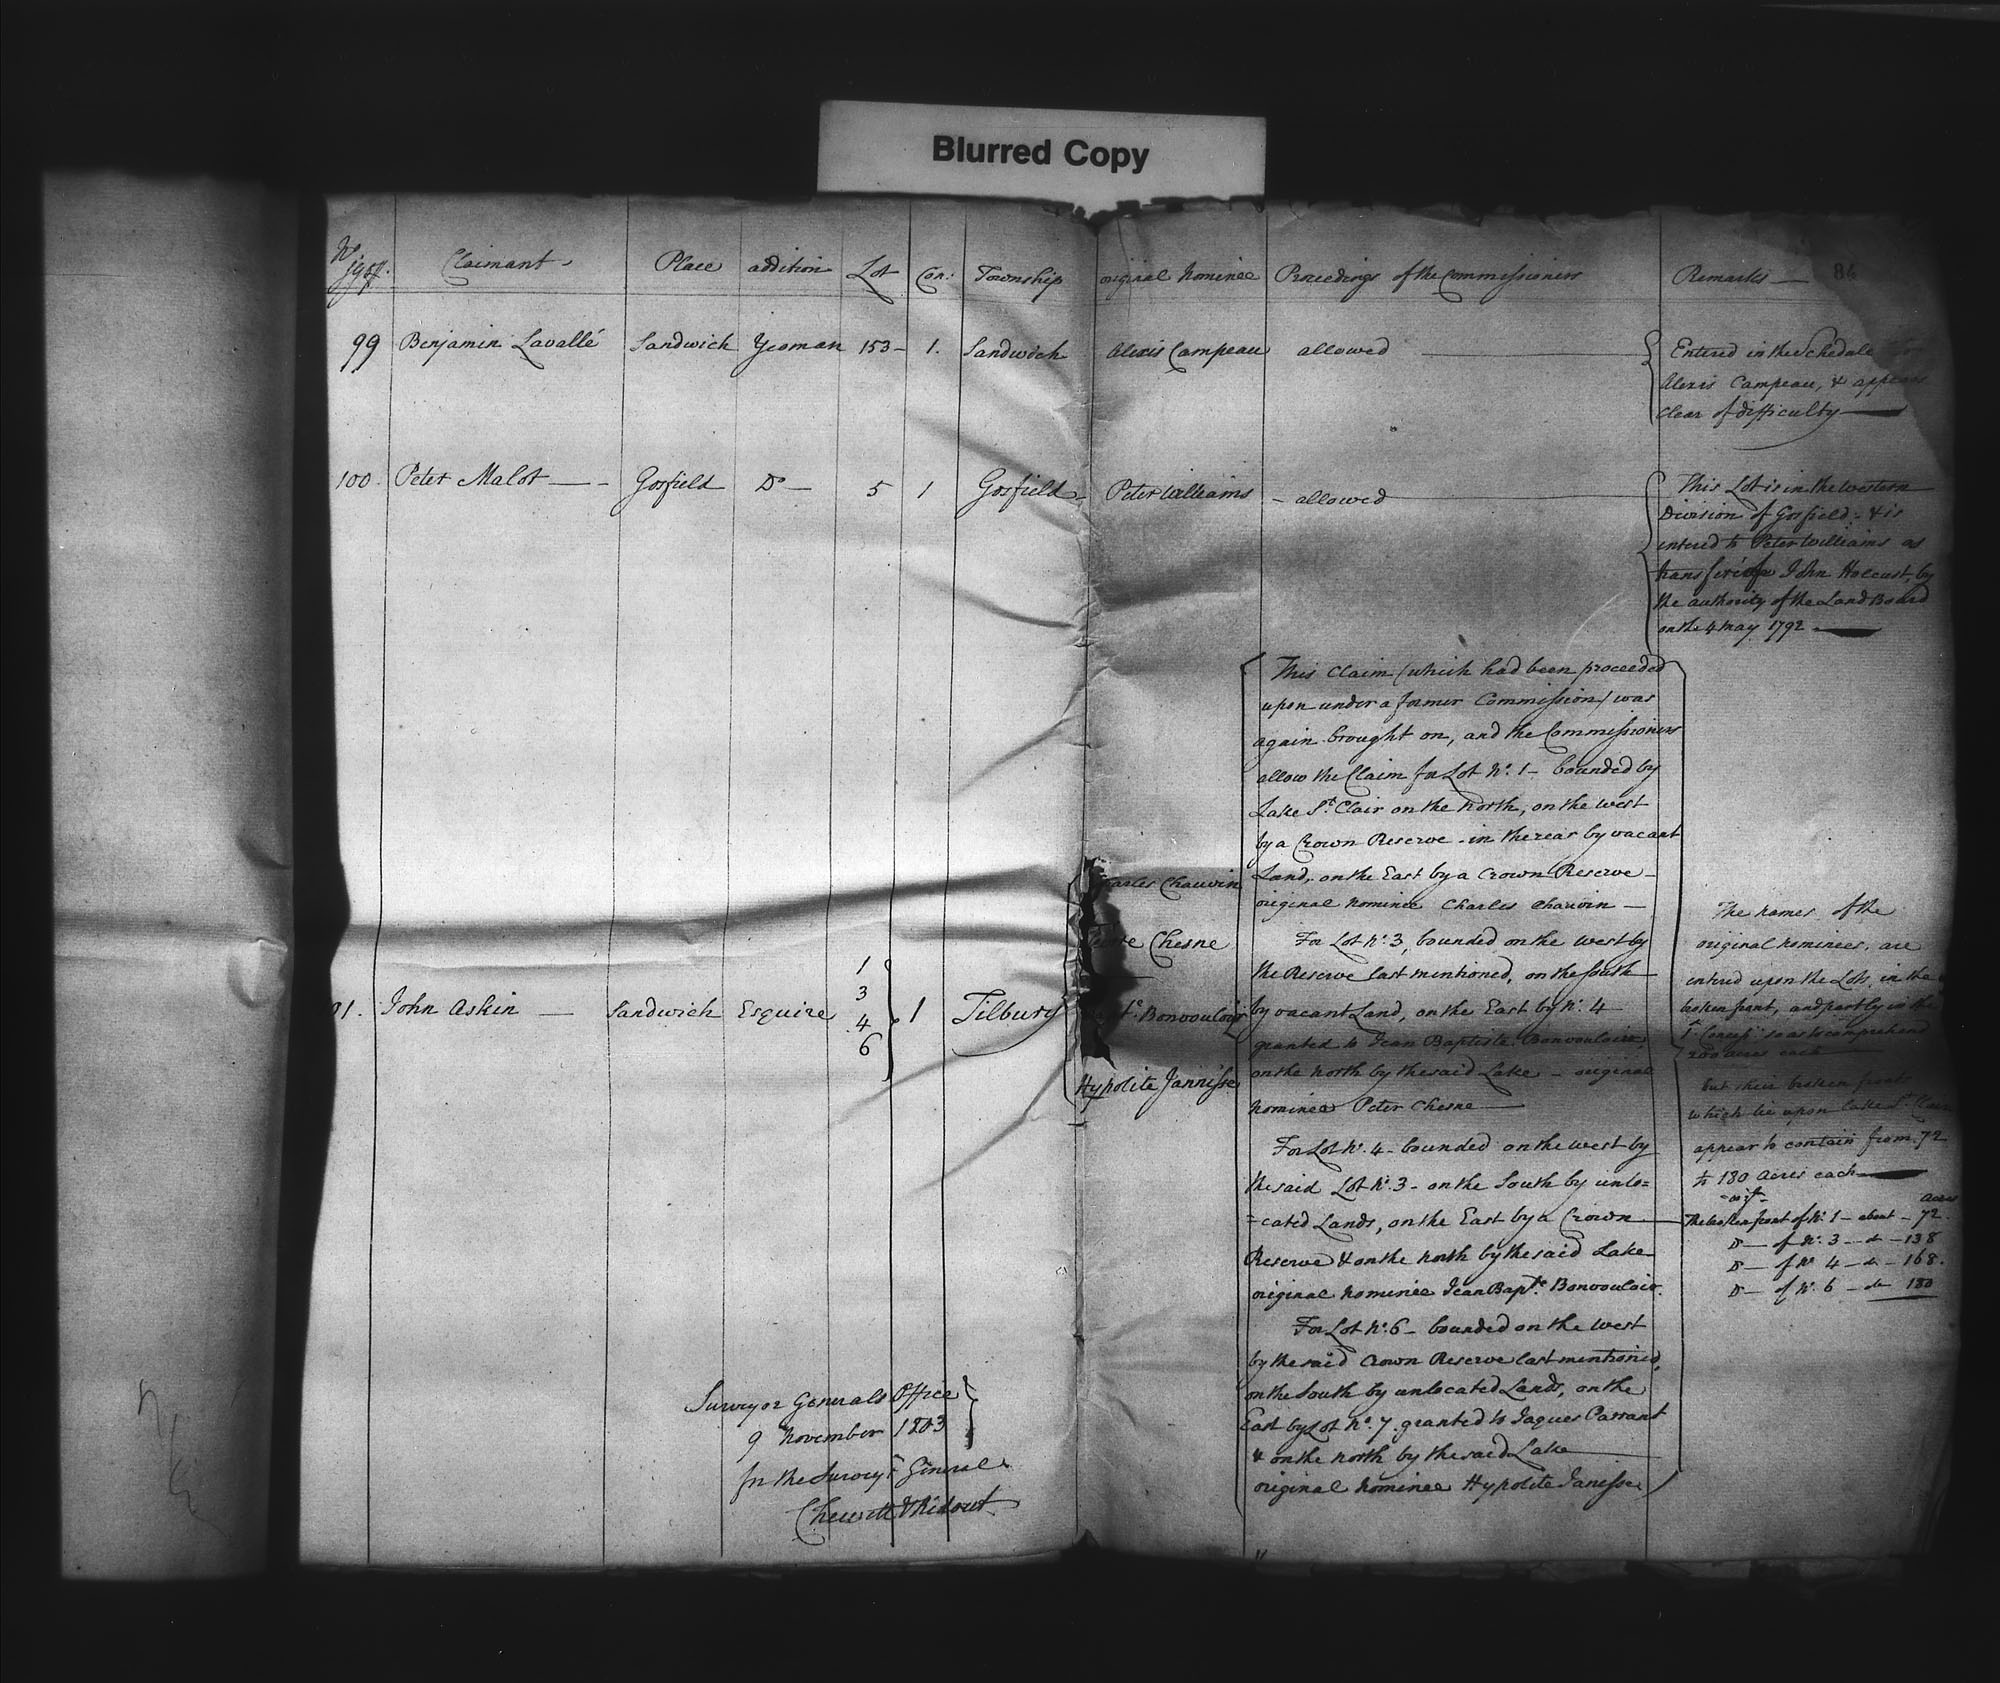 Blurred Copy
No Claimant Place addition Lot Con: Township original Nominee Proceedings of the Commissioners Remarks 84
99 Benjamin Lavallé Sandwich Yeoman 153 1. Sandwich Alexis Campeau allowed
Entered in the Schedule
Alexis Campeau, & appears
clear of difficulty
100. Peter Malot Gosfield Do 5 1 Gosfield Peter Williams allowed
This Lot is in the western
Division of Gosfield - & is
entered to Peter Williams as
John Holcust, by
the authority of the Land Board
on the 4 May 1792
John Askin Sandwich Esquire
1
3
4
6
1 Tilbury
arles Chauvin
Chesne
Bonvouloir
Hypolite Jannisse
This Claim (which had been proceeded
upon under a former Commission) was
again brought on, and the Commissioners
allow the Claim for Lot No. 1 - bounded by
Lake St. Clair on the North, on the west
by a Crown Reserve - in the rear by vacant
Land, on the East by a Crown Reserve -
original nominee Charles Chauvin -
For Lot No. 3, bounded on the west by
the Reserve last mentioned, on the South
by vacant Land, on the East by No. 4
granted to Jean Baptiste Bonvouloire
on the north by the said Lake - original
nominee Peter Chesne
For Lot No. 4 - bounded on the west by
the said Lot No. 3 - on the South by unlo=
=cated Lands, on the East by a Crown
Reserve & on the north by the said Lake
original nominee Jean Bapte. Bonvouloir.
For Lot No. 6 - bounded on the west
by the said Crown Reserve last mentioned,
on the South by unlocated Lands, on the
East by Lot No. 7. granted to Jaques Parrant
& on the north by the said Lake
original nominee Hypolite Janisse
The names of the
original nominees, are
entered upon the Lots, in the
broken front, and partly in the
1st Concessn. so as to comprehend
200 acres each
But their broken fronts
which lie upon Lake St. Clair
appear to contain from 72
to 180 acres each
acres
The broken front of No. 1 - about - 72.
Do - of No. 3 - do - 138
Do - of No. 4 - do - 168.
Do - of No. 6 - do 180
Surveyor Generals Office
9 November 1803
for the Surveyr. General
Chewett & Ridout